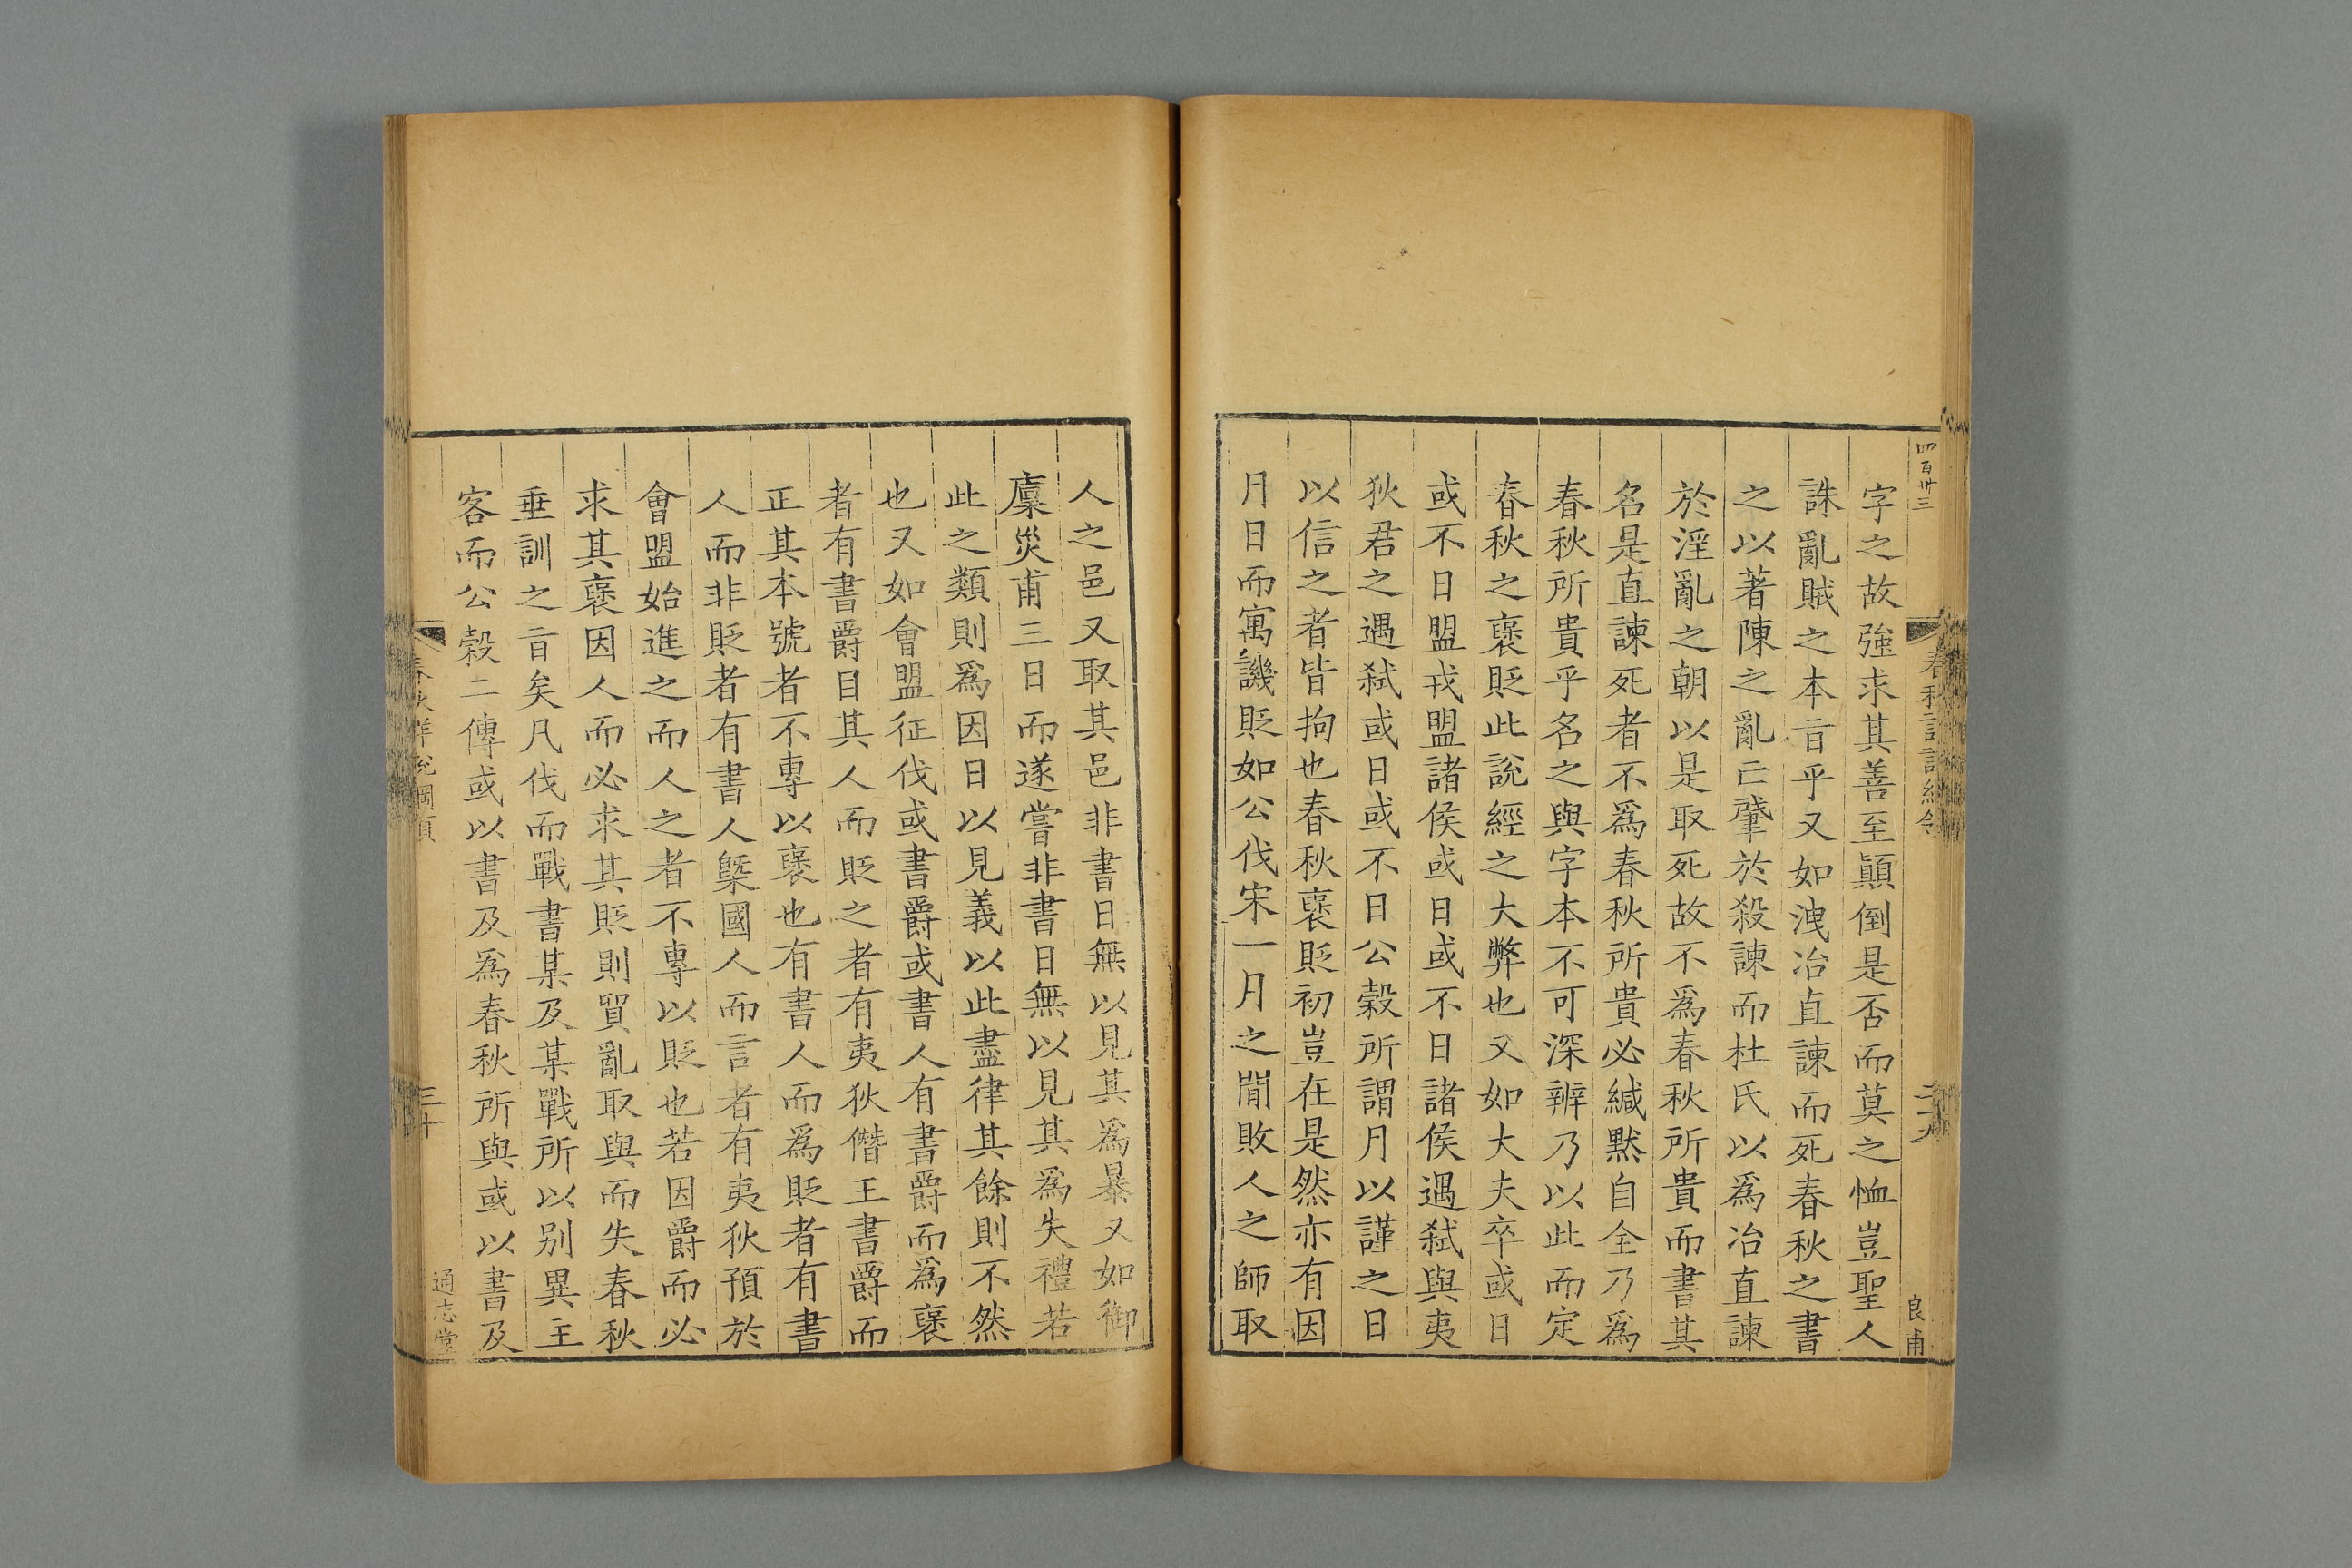 四百卅三
字之故強求其善至顚倒是否而莫之恤豈聖人
誅亂賊之本旨乎又如洩冶直諫而死春秋之書
之以著陳之亂亡肇於殺諫而杜氏以爲冶直諫
於淫亂之朝以是取死故不爲春秋所貴而書其
名是直諫死者不爲春秋所貴必緘默自全乃爲
春秋所貴乎名之與字本不可深辨乃以此而定
春秋之襃貶此說經之大弊也又如大夫卒或日
或不日盟戎盟諸侯或日或不日諸侯遇弑與夷
狄君之遇弑或日或不日公穀所謂月以謹之日
以信之者皆拘也春秋襃貶初豈在是然亦有因
月日而寓譏貶如公伐宋一月之閒敗人之師取
良甫
人之邑又取其邑非書日無以見其爲暴又如御
廩災甫三日而遂嘗非書日無以見其爲失禮若
此之類則爲因日以見義以此盡律其餘則不然
也又如會盟征伐或書爵或書人有書爵而爲襃
者有書爵目其人而貶之者有夷狄僭王書爵而
正其本號者不專以襃也有書人而爲貶者有書
人而非貶者有書人槩國人而言者有夷狄預於
會盟始進之而人之者不專以貶也若因爵而必
求其襃因人而必求其貶則貿亂取與而失春秋
垂訓之旨矣凡伐而戰書某及某戰所以别異主
客而公穀二傳或以書及爲春秋所與或以書及
春秋詳說綱領
三十
通志堂